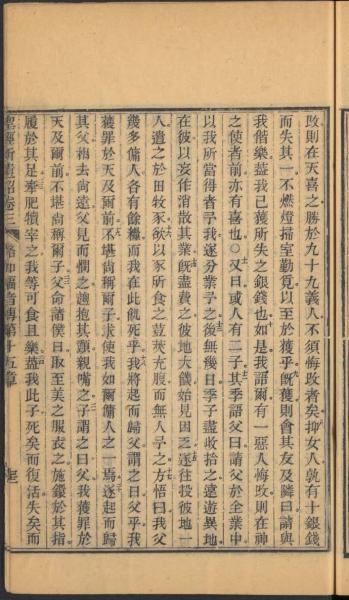 改則在天喜之勝於九十九義人不須悔改者矣抑女人孰有十銀錢
而失其一不燃燈掃室勤覓以至於獲乎旣獲則會其友及隣曰請與
我偕樂蓋我已獲所失之銀錢也如是我語爾有一惡人悔改則在神
之使者前亦有喜也○又曰或人有二子其季語父曰請父於全業中
以我所當得者予我遂分業予之後無幾日季子盡收拾之遠遊異地
在彼以妄作消散其業旣盡費之彼地大饑始見困乏遂往投彼地一
人遣之於田牧豕欲以豕所食之荳莢充腹而無人予之方悟曰我父
幾多傭人各有餘糧而我在此飢死乎我將起而歸父謂之曰父乎我
獲罪於天及爾前不堪尙稱爾子求使我如爾傭人之一焉遂起而歸
其父相去尙遠父見而憫之趨抱其頸親嘴之子謂之曰父我獲罪於
天及爾前不堪尙稱爾子父命諸僕曰取至美之服衣之施鐶於其指
履於其足牽肥犢宰之我等可食且樂蓋我此子死矣而復活失矣而
聖經新遺詔卷三 路加福音傳第十五章